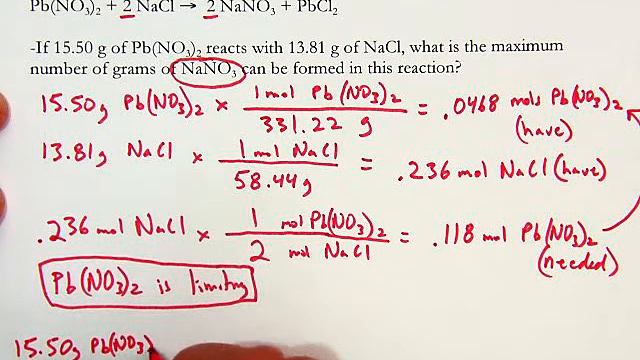 Pb(NO₃)₂ + 2 NaCl → 2 NaNO₃ + PbCl₂
-If 15.50 g of Pb(NO₃)₂ reacts with 13.81 g of NaCl, what is the maximum
number of grams of NaNO₃ can be formed in this reaction?
15.50g Pb(NO₃)₂ × 1 mol Pb(NO₃)₂ / 331.22 g = .0468 mols Pb(NO₃)₂ (have)
13.81g NaCl × 1 mol NaCl / 58.44g = .236 mol NaCl (have)
.236 mol NaCl × 1 mol Pb(NO₃)₂ / 2 mol NaCl = .118 mol Pb(NO₃)₂ (needed)
Pb(NO₃)₂ is limiting
15.50g Pb(NO₃)